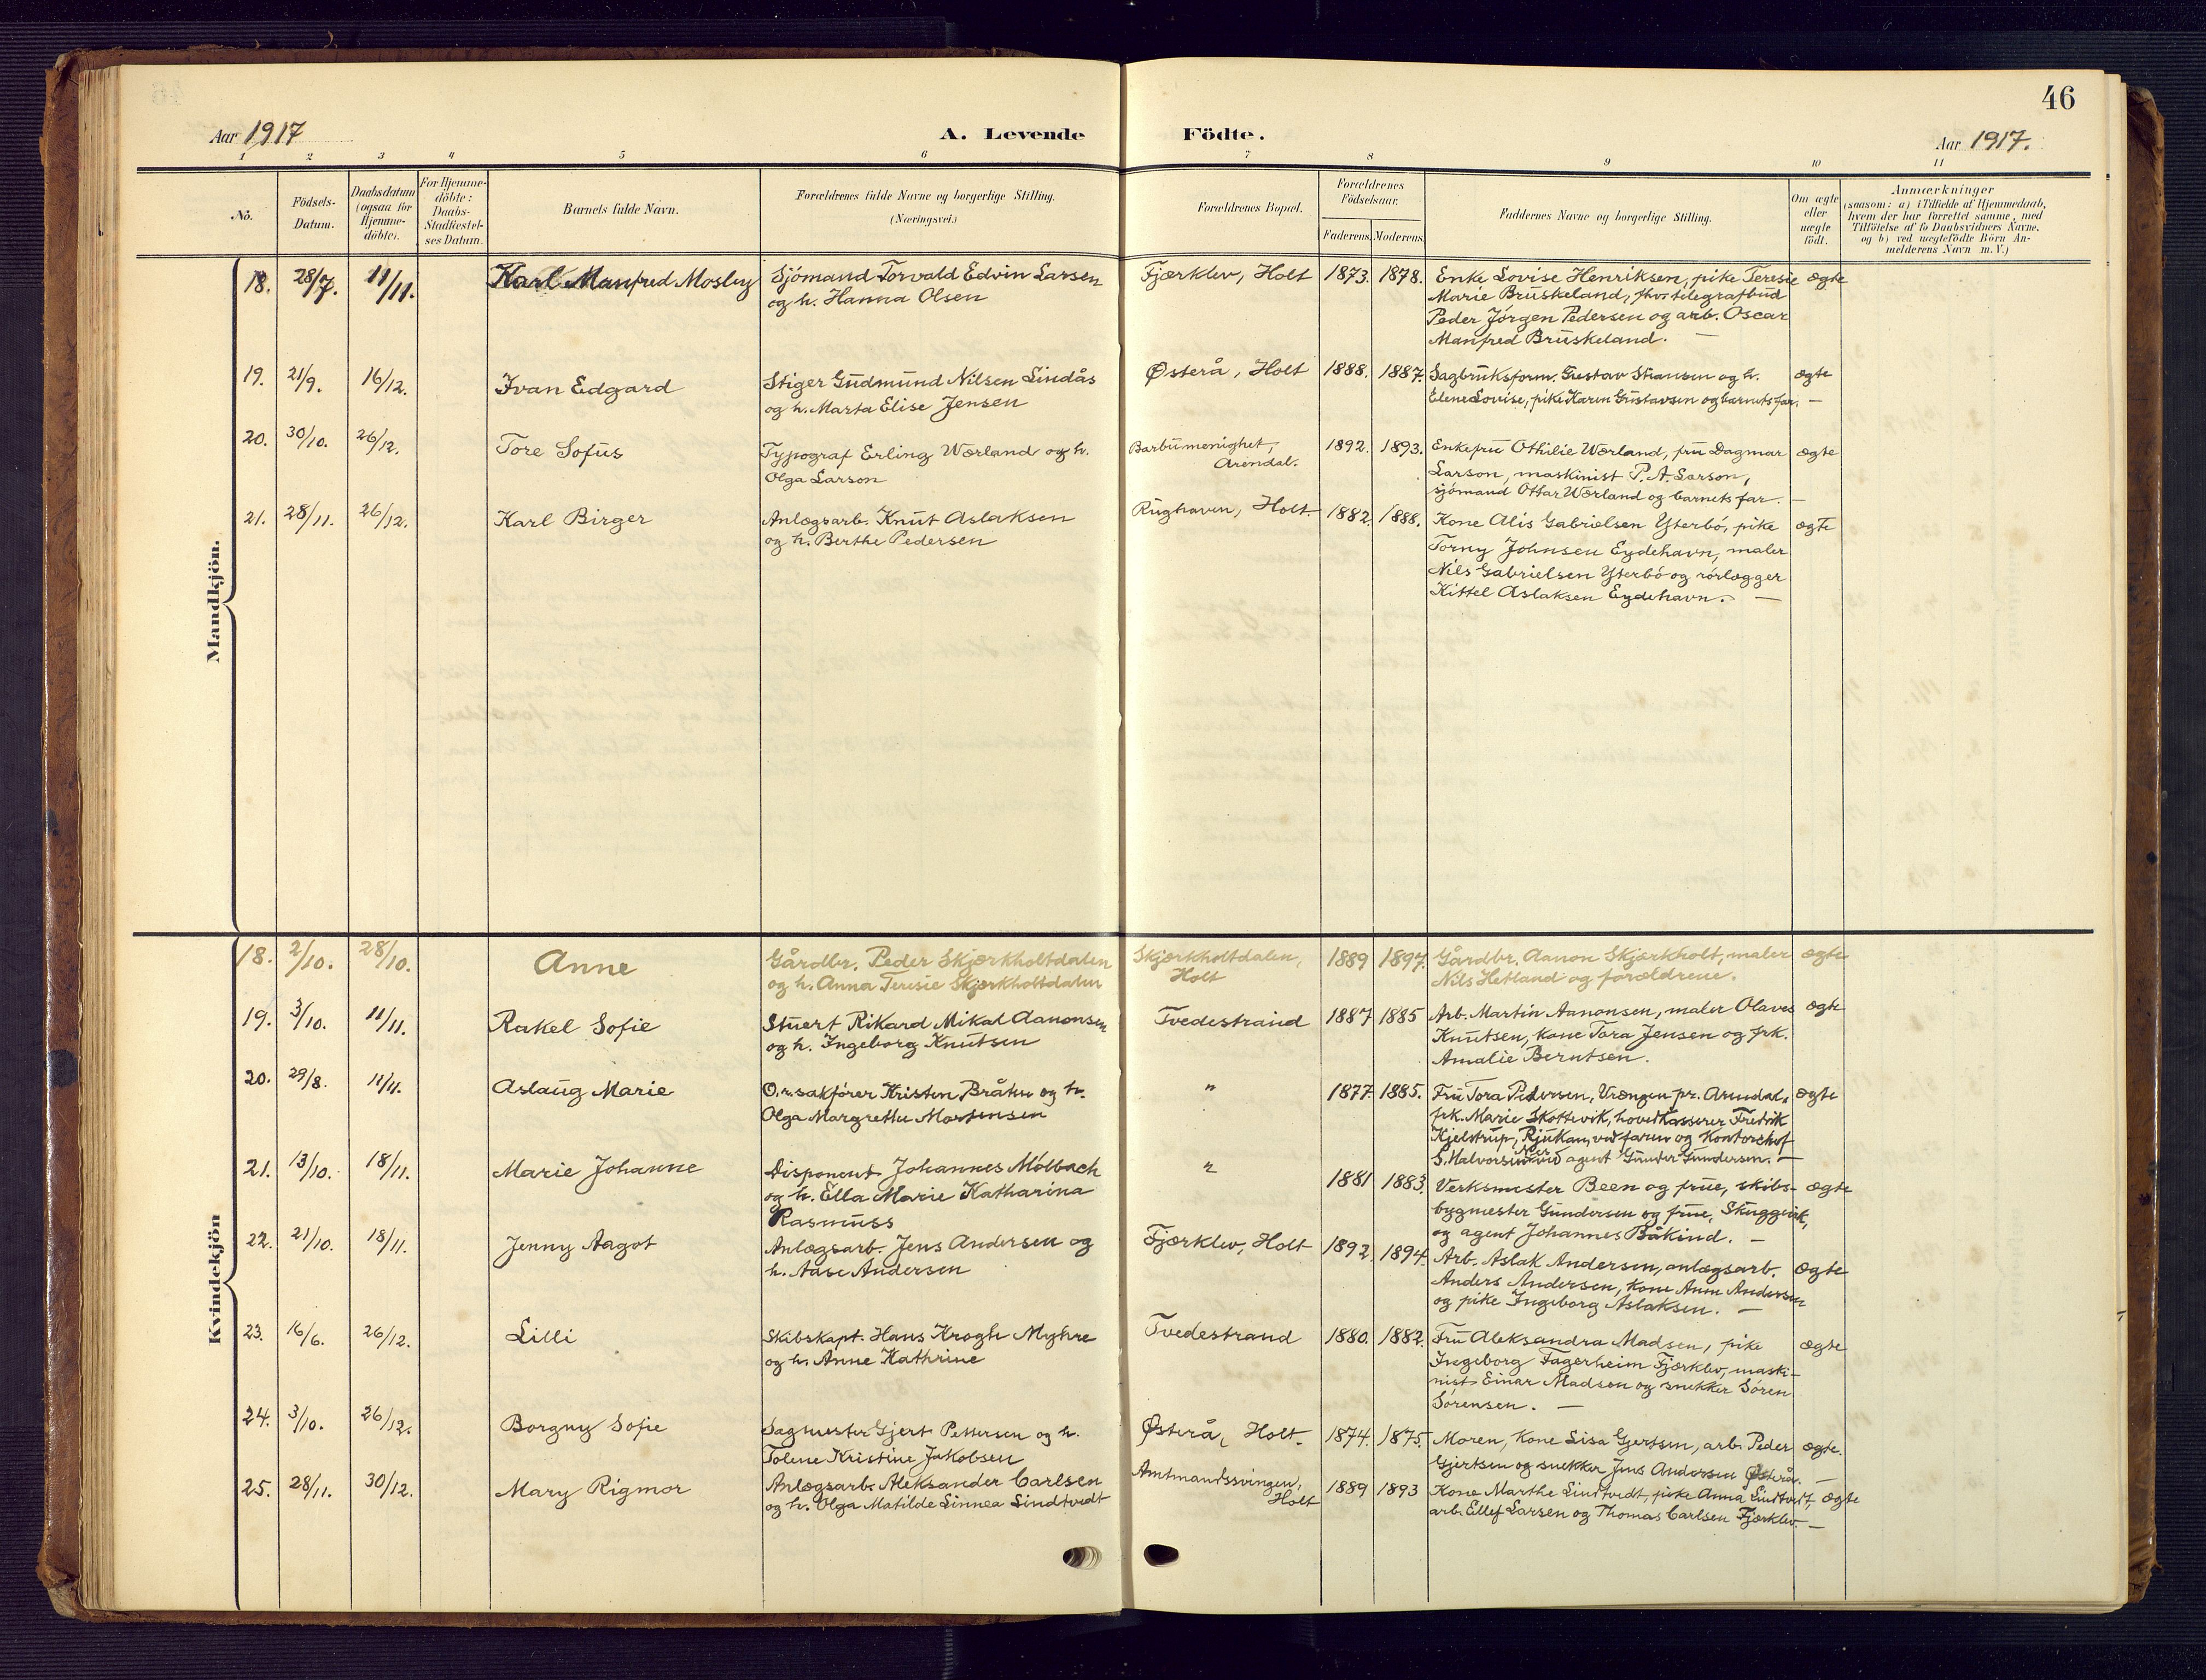 46
Aar 1917
A. Levende Födte.
Aar 1917.
1 2 3 4 5 6 7 8 9 10 11
No.
Födsels-
Datum.
Daabsdatum
(ogsaa for
Hjemme-
döbte).
For Hjemme-
döbte:
Daabs-
Stadfæstel-
ses Datum.
Barnets fulde Navn.
Forældrenes fulde Navne og borgerlige Stilling.
(Næringsvei.)
Forældrenes Bopæl.
Forældrenes
Födselsaar.
Faderens. Moderens.
Faddernes Navne og borgerlige Stilling.
Om ægte
eller
uægte
födt.
Anmærkninger
(saasom: a) i Tilfælde af Hjemmedaab,
hvem der har forrettet samme, med
Tilföielse af to Daabsvidners Navne.
og b) ved uægtefödte Börn An-
melderens Navn m. V.)
Mandkjön.
18. 28/7. 11/11. Karl Manfred Mosley
Sjömand Torvald Edvin Larsen
og h. Hanna Olsen
Fjærklev, Holt 1873. 1878.
Enke Lovise Henriksen, pike Teresie
Marie Bruskeland, fhv. telegrafbud
Peder Jörgen Pedersen og arb. Oscar
Manfred Bruskeland. —
ægte
19. 21/9. 16/12. Ivan Edgard
Stiger Gudmund Nilsen Lindås
og h. Marta Elise Jensen
Østerå, Holt 1888. 1887.
Sagbruksform. Gustav Stiansen og h.
Elene Lovise, pike Karen Gustavsen og barnets far. —
ægte
20. 30/10. 26/12. Tore Sofus
Typograf Erling Wærland og h.
Olga Larson
Barbu menighet,
Arendal.
1892. 1893.
Enkefru Othilie Wærland, fru Dagmar
Larson, maskinist P. A. Larson,
sjömand Ottar Wærland og barnets far. —
ægte
21. 28/11. 26/12. Karl Birger
Anlægsarb. Knut Aslaksen
og h. Berthe Pedersen
Rughaven, Holt. 1882. 1888.
Kone Alis Gabrielsen Ysterbö, pike
Torny Johnsen Eydehavn, maler
Nils Gabrielsen Ysterbö og rörlægger
Kittel Aslaksen Eydehavn. —
ægte
Kvindekjön
18. 2/10. 28/10. Anne
Gårdbr. Peder Skjærkholtdalen
og h. Anna Teresie Skjærkholtdalen
Skjærkholtdalen,
Holt
1889 1897.
Gårdbr. Aanon Skjærkholt, maler
Nils Hetland og forældrene.
ægte
19. 3/10. 11/11. Rakel Sofie
Stuert Rikard Mikal Aanonsen
og h. Ingeborg Knutsen
Tvedestrand 1887 1885
Arb. Martin Aanonsen, maler Olaves
Knutsen, kone Tora Jensen og frk.
Amalie Berntsen.
ægte
20. 29/8. 11/11. Aslaug Marie
O.r.sakförer Kristen Bråten og h.
Olga Margrethe Mortensen
" 1877 1885.
Fru Tora Pedersen, Vrengen pr. Arendal,
frk. Marie Skottevik, hovedkasserer Fredrik
Kjelstrup, Rjukan, ved faren og Kontorchef
S. Halvorsen ved agent Gunder Gundersen. —
ægte
21. 13/10. 18/11. Marie Johanne
Disponent Johannes Mölbach
og h. Ella Marie Katharina
Rasmuss
" 1881 1883.
Verksmester Been og frue, skibs-
bygmester Gundersen og frue, Skuggevik,
og agent Johannes Båkind. —
ægte
22. 21/10. 18/11. Jenny Aagot
Anlægsarb. Jens Andersen og
h. Aase Andersen
Fjærklev, Holt 1892. 1894.
Arb. Aslak Andersen, anlægsarb.
Anders Andersen, kone Anne Andersen
og pike Ingeborg Aslaksen. —
ægte
23. 16/6. 26/12. Lilli
Skibskapt. Hans Krogh Myhre
og h. Anne Kathrine
Tvedestrand 1880. 1882.
Fru Aleksandra Madsen, pike
Ingeborg Fagerheim Fjærklev, maski-
nist Einar Madsen og snekker Sören
Sörensen. —
ægte
24. 3/10. 26/12. Borgny Sofie
Sagmester Gjert Pettersen og h.
Tolene Kristine Jakobsen
Østerå, Holt. 1874. 1875.
Moren, kone Lisa Gjertsen, arb. Peder
Gjertsen og snekker Jens Andersen Østerå. —
ægte.
25. 28/11. 30/12. Mary Rigmor
Anlægsarb. Aleksander Carlsen
og h. Olga Matilde Linnea Lindtvedt
Amtmandssvingen,
Holt
1889 1893
Kone Marthe Lindtvedt, pike Anna Lindtvedt,
arb. Ellef Larsen og Thomas Carlsen Fjærklev. —
ægte